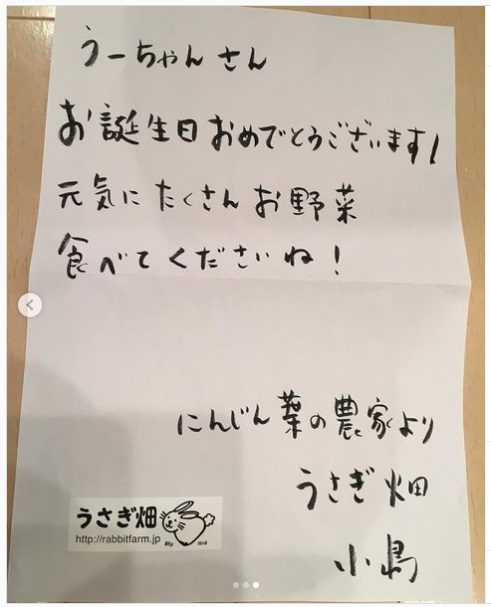 うーちゃんさん
お誕生日おめでとうございます!
元気にたくさんお野菜
食べてくださいね!
にんじん葉の農家より
うさぎ畑
小島
うさぎ畑
http://rabbitfarm.jp